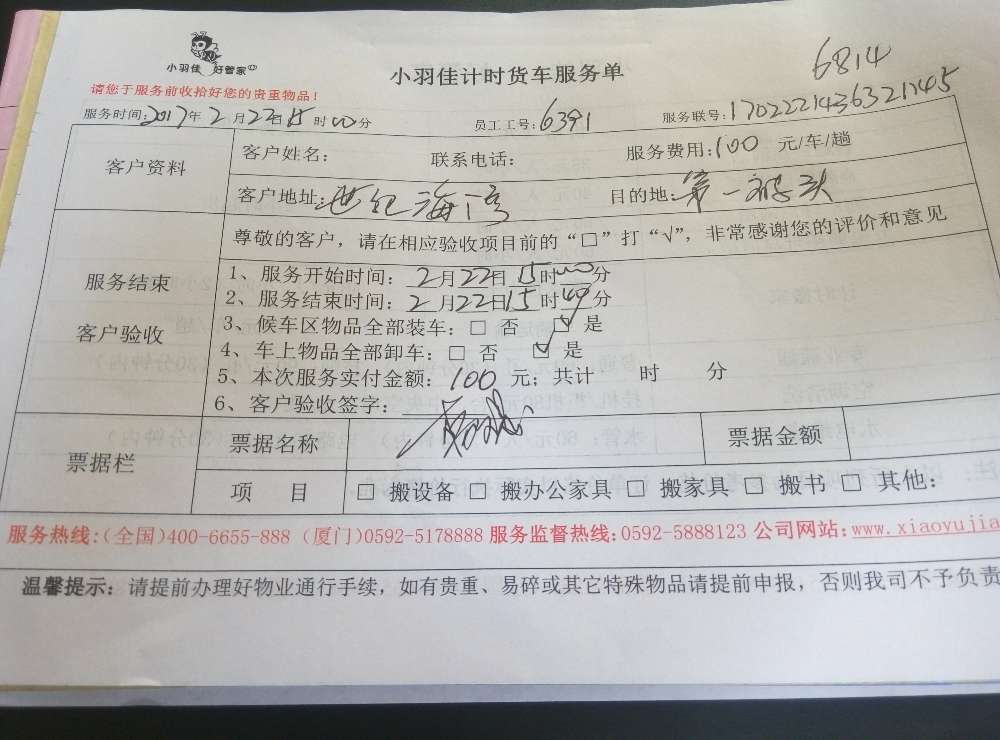 小羽佳 好管家
小羽佳计时货车服务单
6814
请您于服务前收拾好您的贵重物品！
服务时间：2017年2月22日15时00分 员工工号：6391 服务联号：1702221436321145
客户资料
客户姓名： 联系电话： 服务费用：100 元/车/趟
客户地址：世纪海湾 目的地：第一码头
尊敬的客户，请在相应验收项目前的“□”打“√”，非常感谢您的评价和意见
服务结束
客户验收
1、服务开始时间：2月22日15时00分
2、服务结束时间：2月22日15时40分
3、候车区物品全部装车：□ 否 ☑ 是
4、车上物品全部卸车：□ 否 ☑ 是
5、本次服务实付金额：100 元；共计 时 分
6、客户验收签字：
票据栏
票据名称 票据金额
项 目 □ 搬设备 □ 搬办公家具 □ 搬家具 □ 搬书 □ 其他：
服务热线：(全国)400-6655-888 (厦门)0592-5178888 服务监督热线：0592-5888123 公司网站：www.xiaoyujia
温馨提示：请提前办理好物业通行手续，如有贵重、易碎或其它特殊物品请提前申报，否则我司不予负责